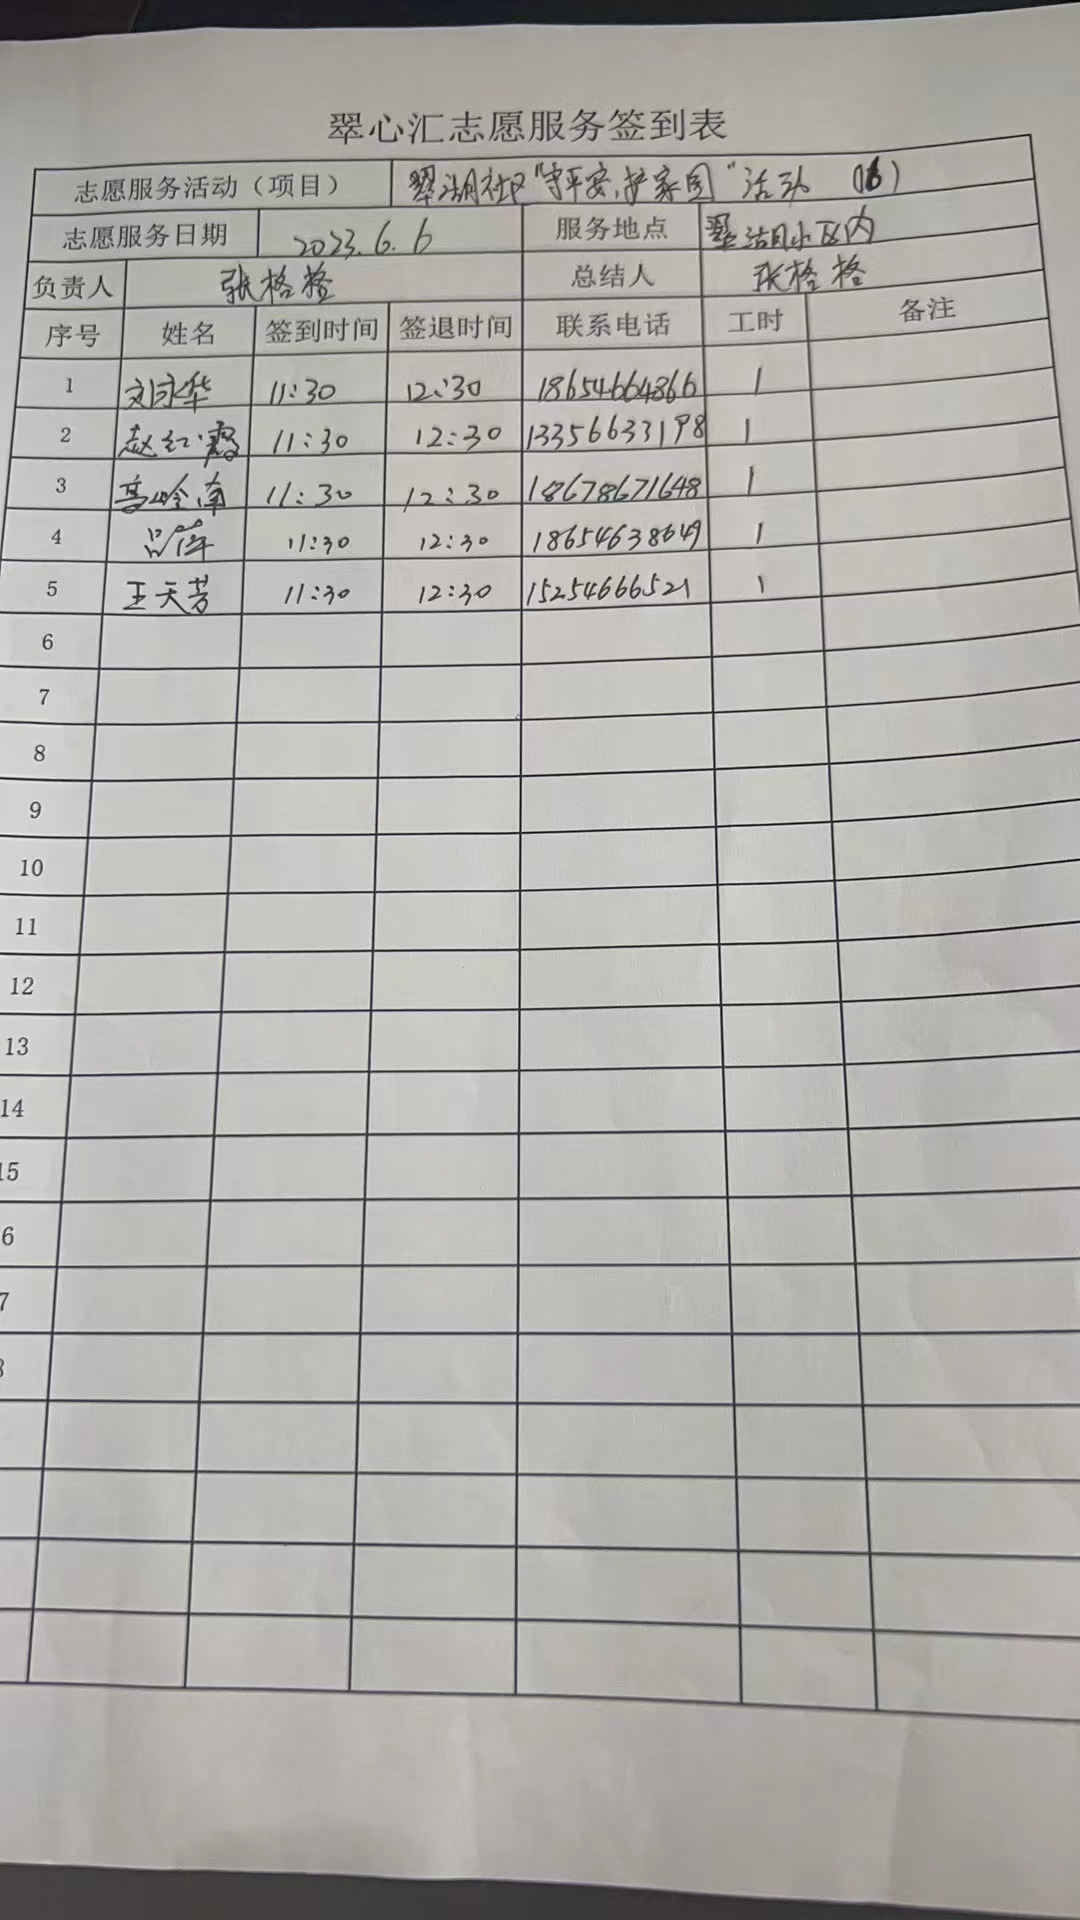 翠心汇志愿服务签到表
志愿服务活动（项目） 翠湖社区“守平安,护家园”活动
志愿服务日期 2023.6.6 服务地点 翠湖小区内
负责人 张格格 总结人 张格格
序号 姓名 签到时间 签退时间 联系电话 工时 备注
1 刘永华 11:30 12:30 18654664866 1
2 赵红霞 11:30 12:30 13356633198 1
3 高岭南 11:30 12:30 18678671648 1
4 吕萍 11:30 12:30 18654638649 1
5 王天芳 11:30 12:30 15254666521 1
6
7
8
9
10
11
12
13
14
15
6
7
8